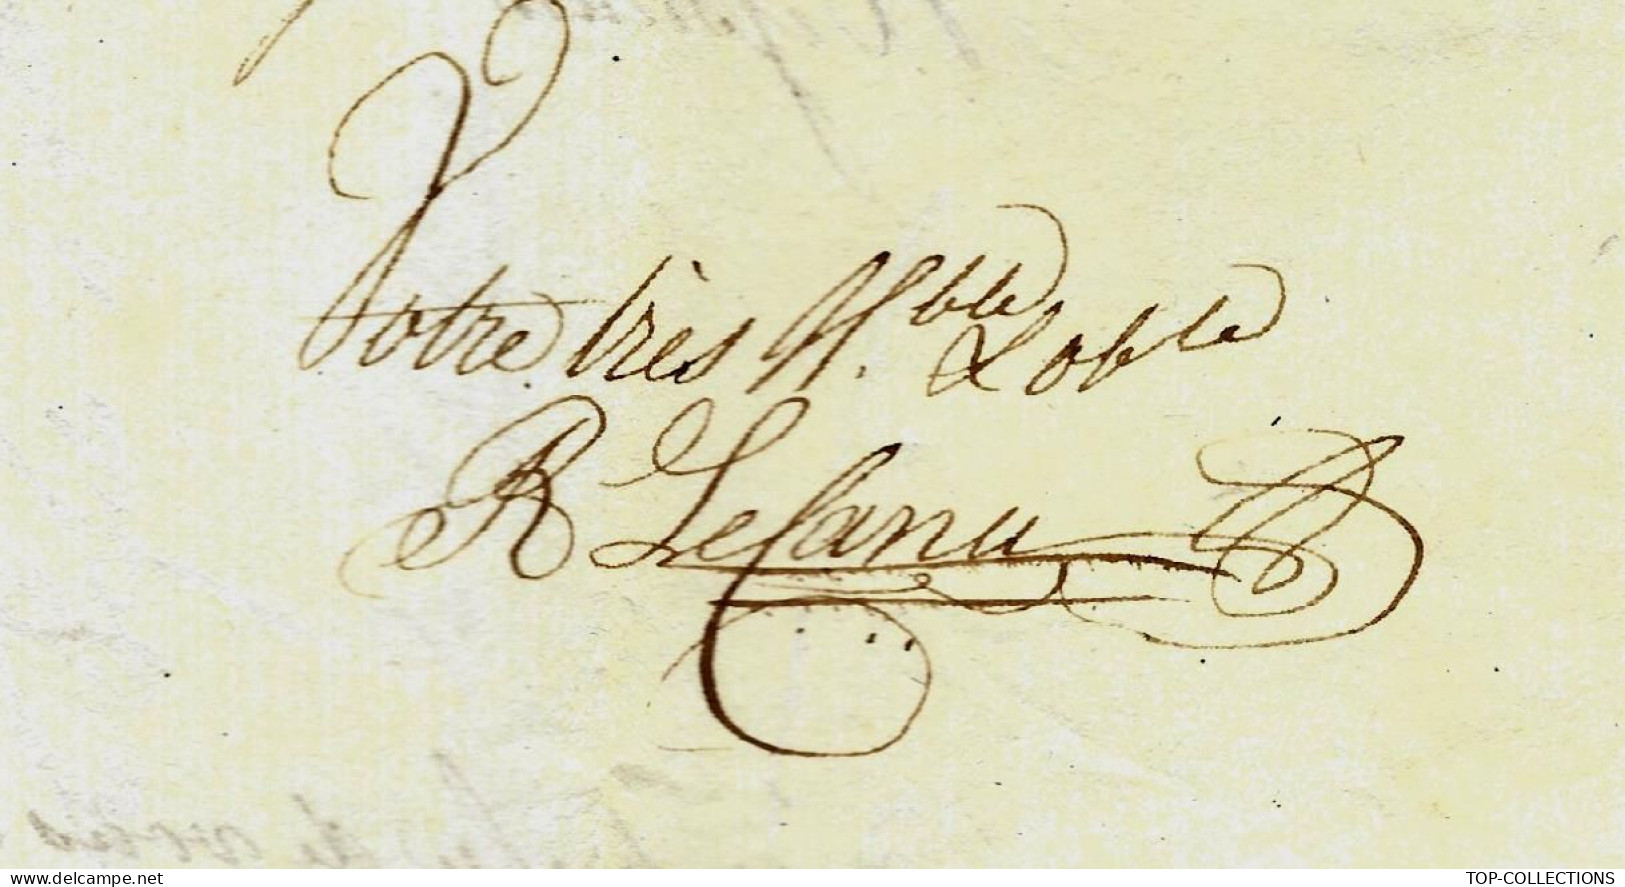 Votre très H.ble & obté
R LeCanu
www.delcampe.net
TOP-COLLECTIONS